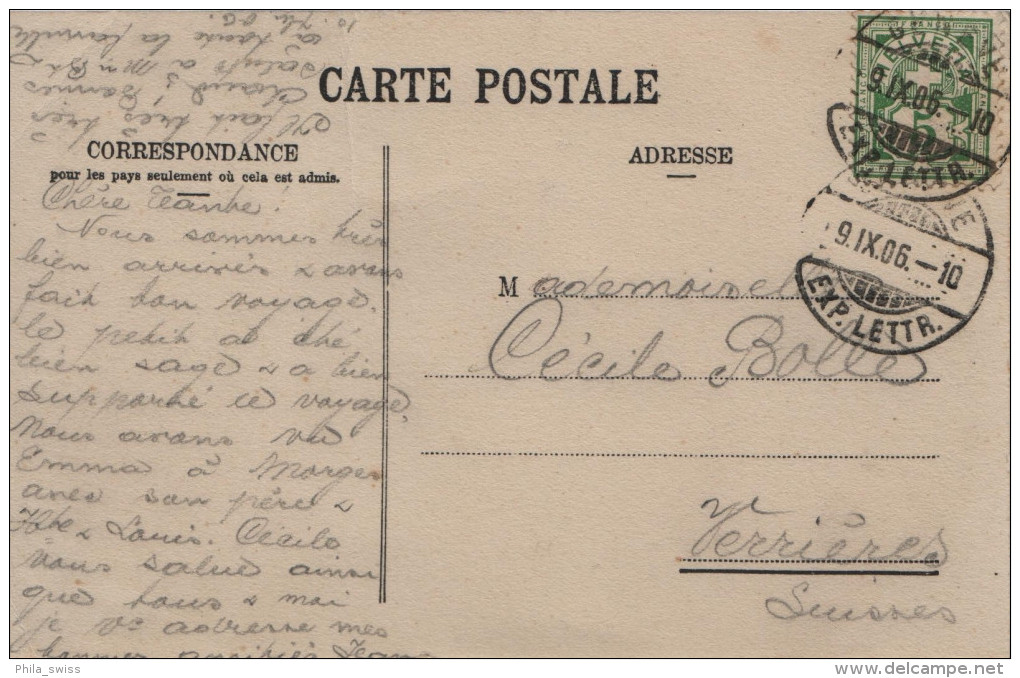 CARTE POSTALE
CORRESPONDANCE
pour les pays seulement où cela est admis.
ADRESSE
Chère Jeanne!
Nous sommes très
bien arrivés & avons
fait bon voyage.
le petit a été
bien sage & a bien
supporté le voyage.
Nous avons vu
Emma à Morges
avec son père &
Louis. Cécile
vous salue ainsi
que tous & moi
je vs adresse mes
bonnes amitiés
Il fait très très
chaud,
Saluts à
& toute la famille
Mademoisel
Cécile Bolle
Verrières
Suisses
FRANCO
9.IX.06.-10
EXP. LETTR.
9.IX.06.-10
EXP. LETTR.
Phila_swiss
delcampe.net